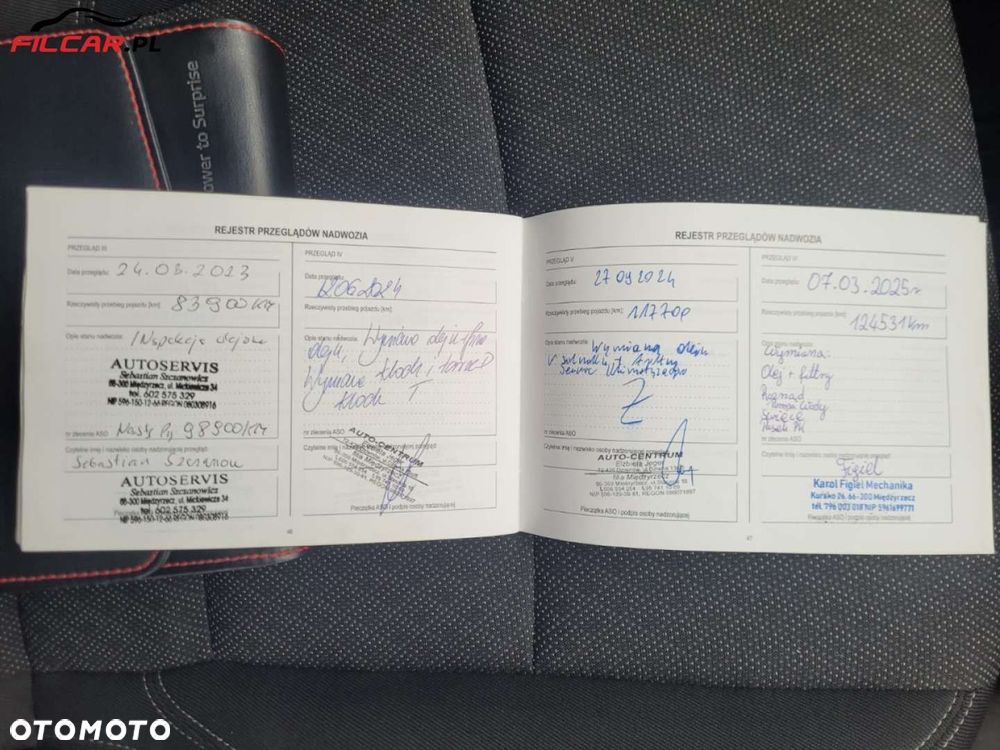 FILCAR.PL
ower to Surprise
REJESTR PRZEGLĄDÓW NADWOZIA
PRZEGLĄD III
Data przeglądu: 24.03.2023
Rzeczywisty przebieg pojazdu [km]: 83900KM
Opis stanu nadwozia: INspekcja olejowa
AUTOSERVIS
Sebastian Szczanowicz
66-300 Międzyrzecz, ul. Mickiewicza 34
tel. 602 575 329
NIP 596-150-12-66 REGON 080308916
nr zlecenia ASO Nastę 98900KM
Czytelne imię i nazwisko osoby nadzorującej przegląd:
Sebastian
AUTOSERVIS
Sebastian Szczanowicz
66-300 Międzyrzecz, ul. Mickiewicza 34
tel. 602 575 329
NIP 596-150-12-66 REGON 080308916
46
PRZEGLĄD IV
Data przeglądu: 12062024
Rzeczywisty przebieg pojazdu [km]:
Opis stanu nadwozia: Wymiana oleju
oleju, Wymiana klock i
klock T
nr zlecenia ASO
AUTO-CENTRUM
Pieczątka ASO i podpis osoby nadzorującej
REJESTR PRZEGLĄDÓW NADWOZIA
PRZEGLĄD V
Data przeglądu: 27 09 2024
Rzeczywisty przebieg pojazdu [km]: 117700
Opis stanu nadwozia: Wymiana oleju
w silniku + filtry
Serwis klimatyzacji
nr zlecenia ASO
Czytelne imię i nazwisko osoby nadzorującej przegląd:
AUTO-CENTRUM
Pieczątka ASO i podpis osoby nadzorującej
47
PRZEGLĄD VI
Data przeglądu: 07.03.2025r
Rzeczywisty przebieg pojazdu [km]: 124531km
Opis stanu nadwozia:
Wymiana:
Olej + filtry
Rozrząd
Pompa wody
nr zlecenia ASO
Czytelne imię i nazwisko osoby nadzorującej przegląd:
Figiel
Karol Figiel Mechanika
Kursko 26, 66-300 Międzyrzecz
tel. 796 003 018 NIP 5961699771
Pieczątka ASO i podpis osoby nadzorującej
OTOMOTO